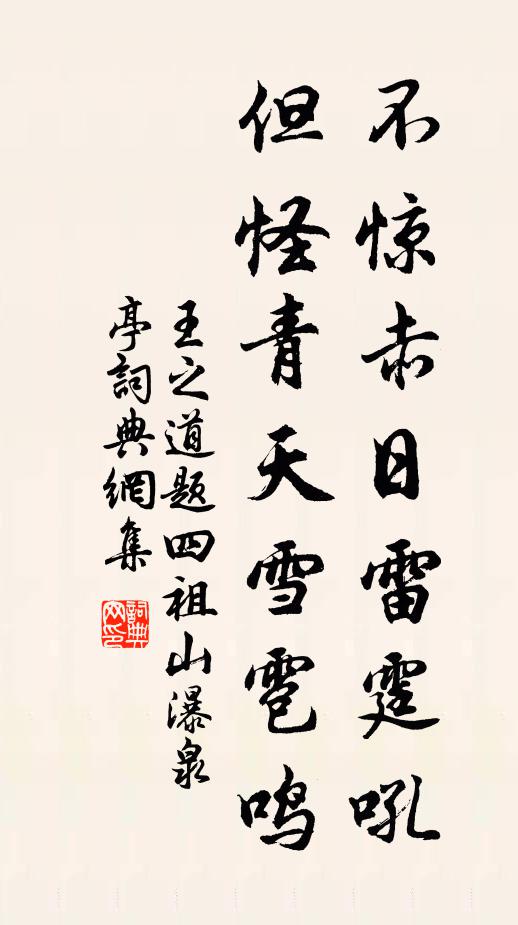 不惊赤日雷霆吼
但怪青天雪雹鸣
王之道题四祖山瀑泉
亭詞典網集
詞典网印